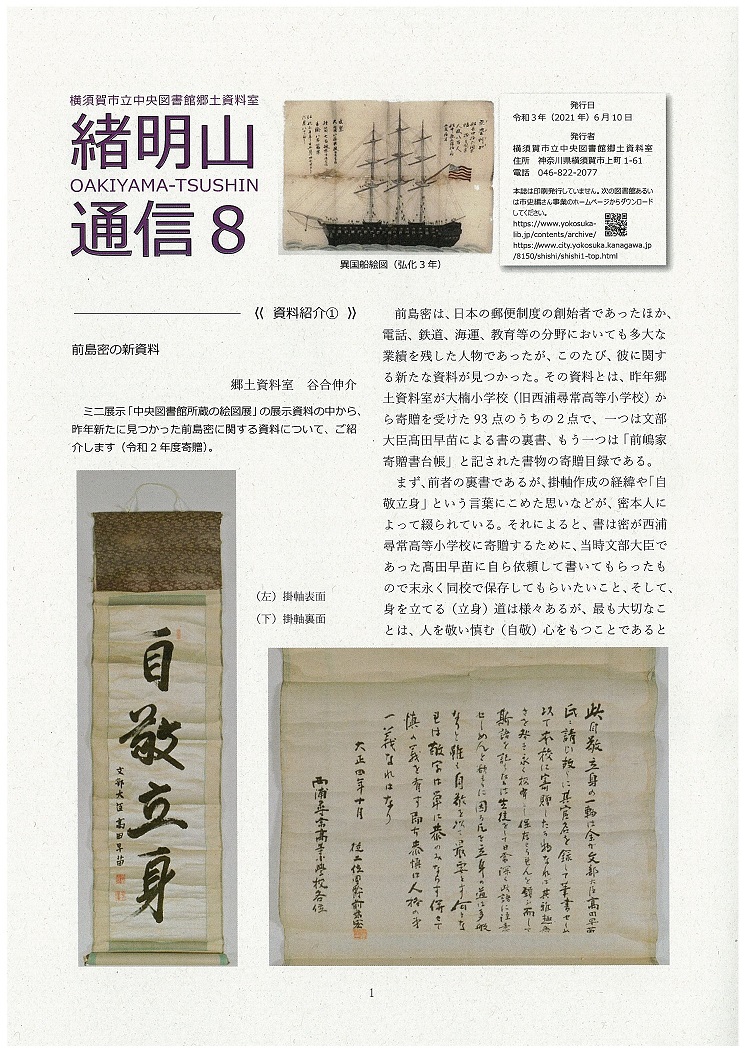 横須賀市立中央図書館郷土資料室
緒明山
OAKIYAMA-TSUSHIN
通信8
異国船絵図（弘化3年）
発行日
令和3年（2021年）6月10日
発行者
横須賀市立中央図書館郷土資料室
住所　神奈川県横須賀市上町1-61
電話　046-822-2077
本誌は印刷発行していません。次の図書館あるい
は市史編さん事業のホームページからダウンロード
してください。
https://www.yokosuka-
lib.jp/contents/archive/
https://www.city.yokosuka.kanagawa.jp
/8150/shishi/shishi1-top.html
《 資料紹介① 》
前島密の新資料
郷土資料室　谷合伸介
ミニ展示「中央図書館所蔵の絵図展」の展示資料の中から、
昨年新たに見つかった前島密に関する資料について、ご紹
介します（令和2年度寄贈）。
（左）掛軸表面
（下）掛軸裏面
自敬立身
文部大臣　高田早苗
前島密は、日本の郵便制度の創始者であったほか、
電話、鉄道、海運、教育等の分野においても多大な
業績を残した人物であったが、このたび、彼に関す
る新たな資料が見つかった。その資料とは、昨年郷
土資料室が大楠小学校（旧西浦尋常高等小学校）か
ら寄贈を受けた93点のうちの2点で、一つは文部
大臣髙田早苗による書の裏書、もう一つは「前嶋家
寄贈書台帳」と記された書物の寄贈目録である。
まず、前者の裏書であるが、掛軸作成の経緯や「自
敬立身」という言葉にこめた思いなどが、密本人に
よって綴られている。それによると、書は密が西浦
尋常高等小学校に寄贈するために、当時文部大臣で
あった髙田早苗に自ら依頼して書いてもらったも
ので末永く同校で保存してもらいたいこと、そして、
身を立てる（立身）道は様々あるが、最も大切なこ
とは、人を敬い慎む（自敬）心をもつことであると
此自敬立身の一軸は余か文部大臣高田早苗
一義なれはなり
大正四年十月
西浦尋常高等小學校各位
1